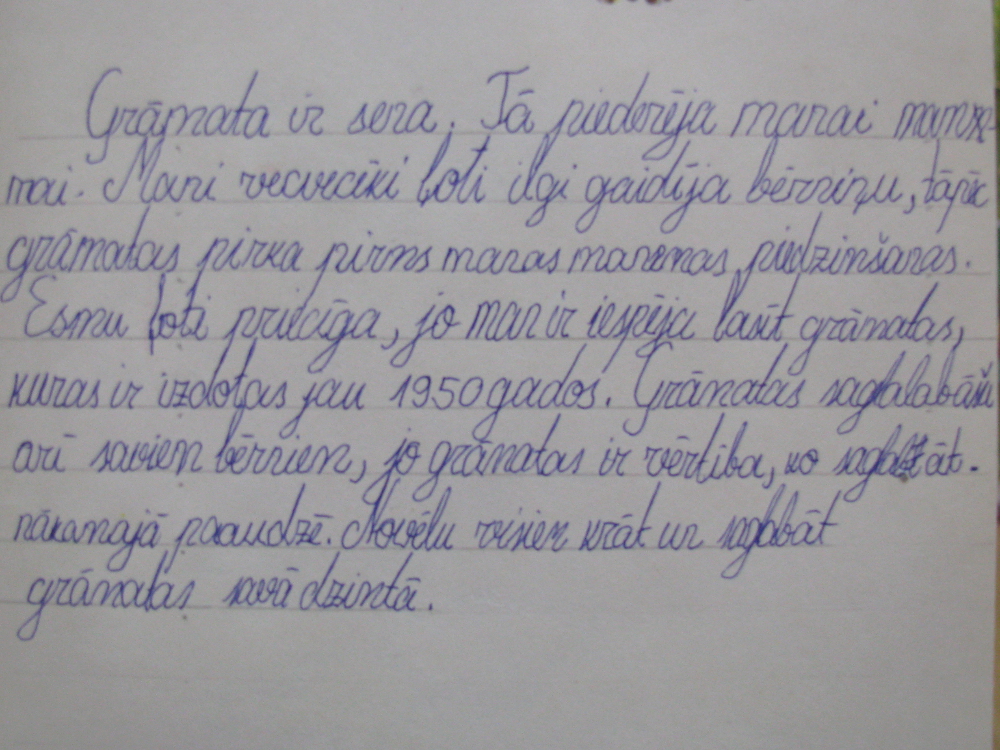 Grāmata ir sena. Tā piederēja manai mamma-
mai. Mani vecvecāki ļoti ilgi gaidīja bērniņu, tāpēc
grāmatas pirka pirms manas mammas piedzimšanas.
Esmu ļoti priecīga, jo man ir iespēja lasīt grāmatas,
kuras ir izdotas jau 1950 gados. Grāmatas saglabāšu
arī saviem bērniem, jo grāmatas ir vērtība, ko saglabāt
nākamajā paaudzē. Novēlu visiem krāt un saglabāt
grāmatas savā dzimtā.